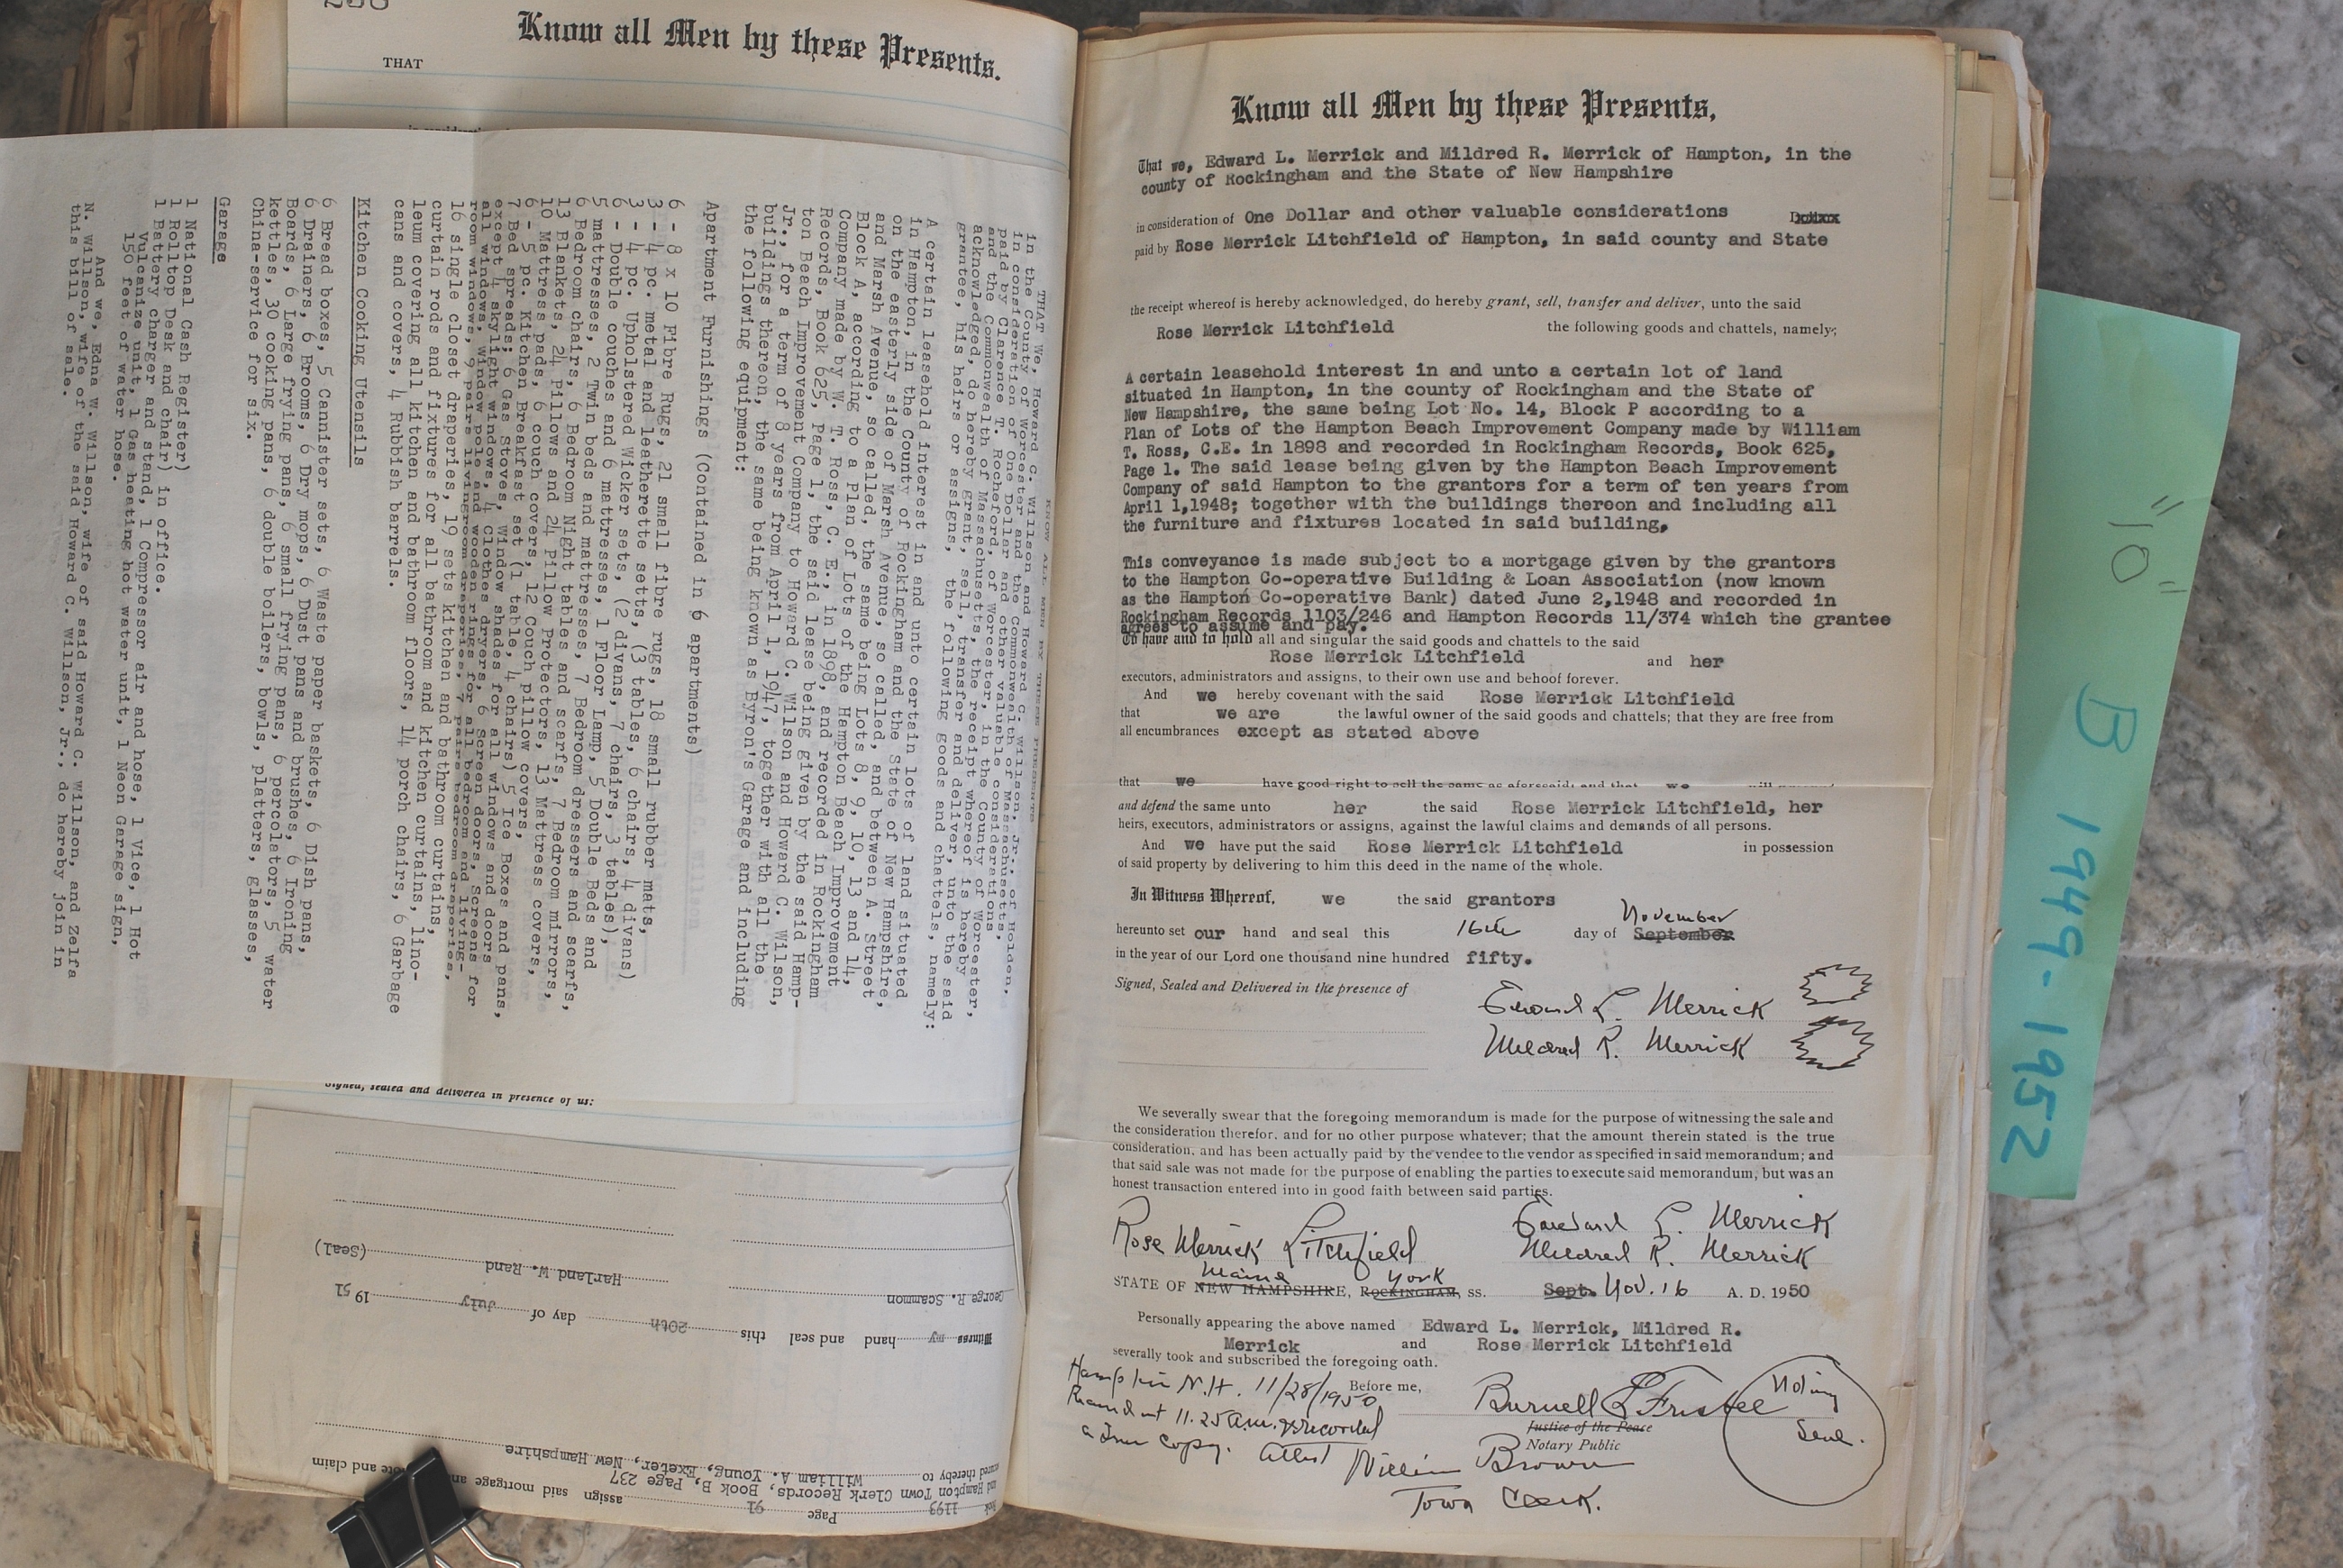 Know all Men by these Presents.
THAT
THAT We, Howard C. Willson and Howard C. Willson, Jr., of Holden,
in the County of Worcester and the Commonwealth of Massachusetts,
in consideration of One Dollar and other valuable considerations
paid by Clarence T. Rocheford, of Worcester, in the County of Worcester,
and the Commonwealth of Massachusetts, the receipt whereof is hereby
acknowledged, do hereby grant, sell, transfer and deliver, unto the said
grantee, his heirs or assigns, the following goods and chattels, namely:
A certain leasehold interest in and unto certain lots of land situated
in Hampton, in the County of Rockingham and the State of New Hampshire,
on the easterly side of Marsh Avenue, so called, and between A. Street
and Marsh Avenue, so called, the same being Lots 8, 9, 10, 13 and 14,
Block A, according to a Plan of Lots of the Hampton Beach Improvement
Company made by W. T. Ross, C. E., in 1898, and recorded in Rockingham
Records, Book 625, Page 1, the said lease being given by the said Hamp-
ton Beach Improvement Company to Howard C. Wilson and Howard C. Wilson,
Jr., for a term of 8 years from April 1, 1947, together with all the
buildings thereon, the same being known as Byron's Garage and including
the following equipment:
Apartment Furnishings (Contained in 6 apartments)
6 - 8 x 10 Fibre Rugs, 21 small fibre rugs, 18 small rubber mats,
3 - 4 pc. metal and leatherette setts, (3 tables, 6 chairs, 4 divans)
3 - 4 pc. Upholstered Wicker sets, (2 divans, 7 chairs, 3 tables),
6 - Double couches and 6 mattresses, 1 Floor Lamp, 5 Double Beds and
5 mattresses, 2 Twin beds and mattresses, 7 Bedroom dressers and scarfs,
6 Bedroom chairs, 6 Bedroom Night tables and scarfs, 7 Bedroom mirrors,
13 Blankets, 24 Pillows and 24 Pillow Protectors, 13 Mattress covers,
10 Mattress pads, 6 couch covers, 12 Couch pillow covers,
6 - 5 pc. Kitchen Breakfast set (1 table, 4 chairs) 5 Ice Boxes and pans,
7 Bed spreads, 6 Gas Stoves, Window shades for all windows and doors
except 4 skylight windows, 4 Clothes dryers, 6 Screen doors, Screens for
all windows, window pole and wooden rings for all bedroom and living-
room windows, 9 pairs livingroom draperies, 7 pairs bedroom draperies,
16 single closet draperies, 19 sets kitchen and bathroom curtains,
curtain rods and fixtures for all bathroom and kitchen curtains, lino-
leum covering all kitchen and bathroom floors, 14 porch chairs, 6 Garbage
cans and covers, 4 Rubbish barrels.
Kitchen Cooking Utensils
6 Bread boxes, 5 Cannister sets, 6 Waste paper baskets, 6 Dish pans,
6 Drainers, 6 Brooms, 6 Dry mops, 6 Dust pans and brushes, 6 Ironing
Boards, 6 Large frying pans, 6 small frying pans, 6 percolators, 5 water
kettles, 30 cooking pans, 6 double boilers, bowls, platters, glasses,
China-service for six.
Garage
1 National Cash Register)
1 Rolltop Desk and chair) in office.
1 Battery charger and stand, 1 Compressor air and hose, 1 Vice, 1 Hot
Vulcanize unit, 1 Gas heating hot water unit, 1 Neon Garage sign,
150 feet of water hose.
And we, Edna W. Willson, wife of said Howard C. Willson, and Zelfa
N. Willson, wife of the said Howard C. Willson, Jr., do hereby join in
this bill of sale.
Signed, sealed and delivered in presence of us:
1193 Page 91 assign said mortgage
and Hampton Town Clerk Records, Book B, Page 237 note and claim
secured thereby to William A. Young, Exeter, New Hampshire
Witness my hand and seal this 20th day of July 19 51
George R. Scammon
Harland W. Rand (Seal)
Know all Men by these Presents,
That we, Edward L. Merrick and Mildred R. Merrick of Hampton, in the
county of Rockingham and the State of New Hampshire
in consideration of One Dollar and other valuable considerations
paid by Rose Merrick Litchfield of Hampton, in said county and State
the receipt whereof is hereby acknowledged, do hereby grant, sell, transfer and deliver, unto the said
Rose Merrick Litchfield the following goods and chattels, namely:
A certain leasehold interest in and unto a certain lot of land
situated in Hampton, in the county of Rockingham and the State of
New Hampshire, the same being Lot No. 14, Block P according to a
Plan of Lots of the Hampton Beach Improvement Company made by William
T. Ross, C.E. in 1898 and recorded in Rockingham Records, Book 625,
Page 1. The said lease being given by the Hampton Beach Improvement
Company of said Hampton to the grantors for a term of ten years from
April 1,1948; together with the buildings thereon and including all
the furniture and fixtures located in said building,
This conveyance is made subject to a mortgage given by the grantors
to the Hampton Co-operative Building & Loan Association (now known
as the Hampton Co-operative Bank) dated June 2,1948 and recorded in
Rockingham Records 1103/246 and Hampton Records 11/374 which the grantee
agrees to assume and pay.
To have and to hold all and singular the said goods and chattels to the said
Rose Merrick Litchfield and her
executors, administrators and assigns, to their own use and behoof forever.
And we hereby covenant with the said Rose Merrick Litchfield
that we are the lawful owner of the said goods and chattels; that they are free from
all encumbrances except as stated above
that we have good right to sell the same as aforesaid; and that we will
and defend the same unto her the said Rose Merrick Litchfield, her
heirs, executors, administrators or assigns, against the lawful claims and demands of all persons.
And we have put the said Rose Merrick Litchfield in possession
of said property by delivering to him this deed in the name of the whole.
In Witness Whereof, we the said grantors
November
hereunto set our hand and seal this 16th day of September
in the year of our Lord one thousand nine hundred fifty.
Signed, Sealed and Delivered in the presence of
Edward L. Merrick
Mildred R. Merrick
We severally swear that the foregoing memorandum is made for the purpose of witnessing the sale and
the consideration therefor, and for no other purpose whatever; that the amount therein stated is the true
consideration, and has been actually paid by the vendee to the vendor as specified in said memorandum; and
that said sale was not made for the purpose of enabling the parties to execute said memorandum, but was an
honest transaction entered into in good faith between said parties.
Edward L. Merrick
Rose Merrick Litchfield Mildred R. Merrick
Maine York
STATE OF NEW HAMPSHIRE, ROCKINGHAM, ss. Sept. Nov. 16 A. D. 1950
Personally appearing the above named Edward L. Merrick, Mildred R.
Merrick and Rose Merrick Litchfield
severally took and subscribed the foregoing oath.
Before me,
Burnell
Justice of the Peace
Notary Public
Seal.
Hampton N.H. 11/28/1950
Received at 11.25 a.m. & recorded
a True Copy. Attest William Brown
Town Clerk.
"10"
B 1949-1952